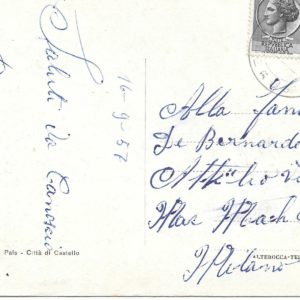 Saluti da
16-9-57
Alla Fam
De Bernarde
Attilio V
Mac Mah
Milano
Pals - Città di Castello
ALTEROCCA-TE